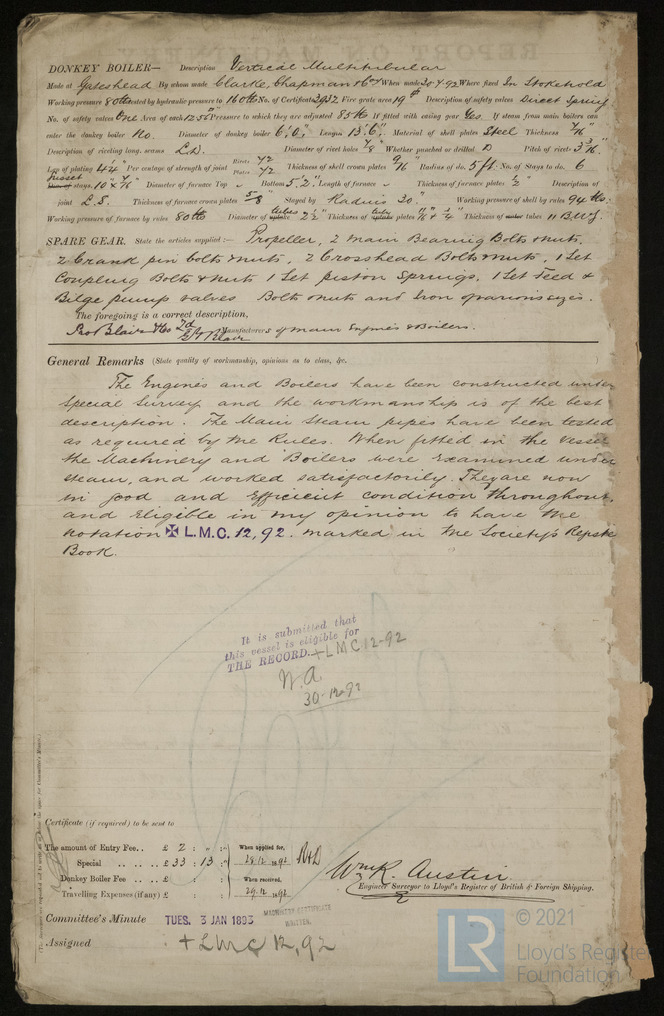 DONKEY BOILER— Description Vertical Multitubular
Made at Gateshead By whom made Clarke, Chapman & Co When made 30.7.92 Where fixed In Stokehold
Working pressure 80 lbs tested by hydraulic pressure to 160 lbs No. of Certificate 3932 Fire grate area 19 Description of safety valves Direct Spring
No. of safety valves One Area of each 12.56" Pressure to which they are adjusted 85 lbs If fitted with easing gear Yes. If steam from main boilers can
enter the donkey boiler No. Diameter of donkey boiler 6'.0" Length 13'.6" Material of shell plates Steel Thickness 7/16"
Description of riveting long. seams L.D. Diameter of rivet holes 7/8" Whether punched or drilled D Pitch of rivets 3 3/16"
Lap of plating 4 1/4" Per centage of strength of joint Rivets 72 Plates 72 Thickness of shell crown plates 9/16" Radius of do. 5 ft. No. of Stays to do. 6
Gusset stays. 10 x 7/16" Diameter of furnace Top Bottom 5'.2" Length of furnace Thickness of furnace plates 1/2" Description of
joint L.S. Thickness of furnace crown plates 5/8" Stayed by Radius 30. Working pressure of shell by rules 94 lbs.
Working pressure of furnace by rules 80 lbs Diameter of tubes 2 1/2" Thickness of tube plates Thickness of tubes 11 B.W.G.
SPARE GEAR. State the articles supplied:— Propeller, 2 Main Bearing Bolts & nuts,
2 Crank pin bolts & nuts, 2 Crosshead Bolts & nuts, 1 Set
Coupling Bolts & nuts 1 Set piston Springs, 1 Set Feed &
Bilge pump valves Bolts & nuts and Iron of various sizes.
The foregoing is a correct description,
Pro Blair & Co Ld G Y Blair Manufacturers of Main Engines & Boilers.
General Remarks (State quality of workmanship, opinions as to class, &c.
The Engines and Boilers have been constructed under
Special Survey and the workmanship is of the best
description. The Main Steam pipes have been tested
as required by the Rules. When fitted in the vessel
the Machinery and Boilers were examined under
steam, and worked satisfactorily. They are now
in good and efficient condition throughout,
and eligible in my opinion to have the
notation ✠ L.M.C. 12,92. marked in the Society's Register
Book.
It is submitted that
this vessel is eligible for
THE RECORD. + LMC 12-92
W.A.
30-12-92
Certificate (if required) to be sent to
The amount of Entry Fee.. £ 2 : " : "
When applied for,
Special .. .. .. £ 33 : 13 :
28.12.1892
Donkey Boiler Fee .. .. £ : :
When received,
Travelling Expenses (if any) £ : :
29.12.1892
Wm R. Austin
Engineer Surveyor to Lloyd's Register of British & Foreign Shipping.
Committee's Minute TUES. 3 JAN 1893
MACHINERY CERTIFICATE
WRITTEN.
Assigned + LMC 12,92
LR © 2021
Lloyd's Register
Foundation